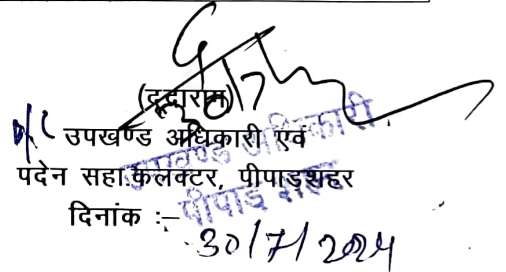 (दूदाराम)
उपखण्ड अधिकारी एवं
पदेन सहा.कलक्टर, पीपाड़शहर
दिनांक :-
30/7/2024
उपखण्ड अधिकारी
पीपाड़ शहर